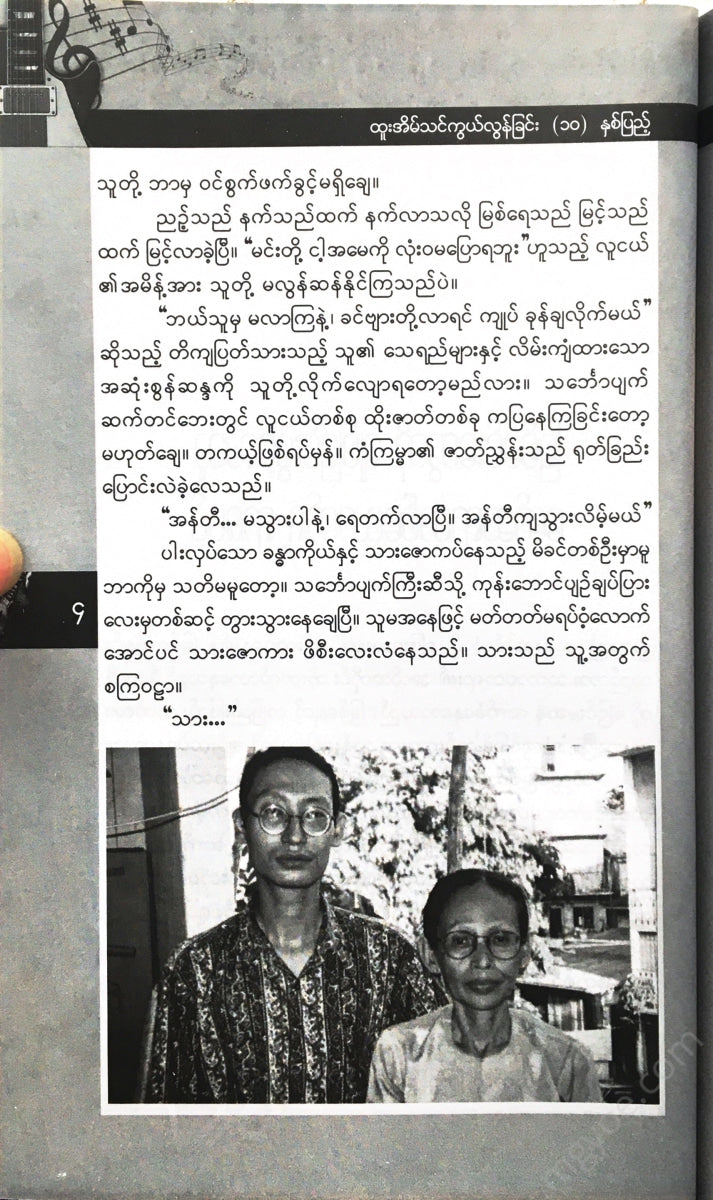 ထူးအိမ်သင်ကွယ်လွန်ခြင်း (၁၀) နှစ်ပြည့်
သူတို့ ဘာမှ ဝင်စွက်ဖက်ခွင့်မရှိချေ။
ညဉ့်သည် နက်သည်ထက် နက်လာသလို မြစ်ရေသည် မြင့်သည်
ထက် မြင့်လာခဲ့ပြီ။ “မင်းတို့ ငါ့အမေကို လုံးဝမပြောရဘူး”ဟူသည့် လူငယ်
၏အမိန့်အား သူတို့ မလွန်ဆန်နိုင်ကြသည်ပဲ။
“ဘယ်သူမှ မလာကြနဲ့၊ ခင်ဗျားတို့လာရင် ကျုပ် ခုန်ချလိုက်မယ်”
ဆိုသည့် တိကျပြတ်သားသည့် သူ၏ သေရည်များနှင့် လိမ်းကျံထားသော
အဆုံးစွန်ဆန္ဒကို သူတို့လိုက်လျောရတော့မည်လား။ သင်္ဘောပျက်
ဆက်တင်ဘေးတွင် လူငယ်တစ်စု ထိုးဇာတ်တစ်ခု ကပြနေကြခြင်းတော့
မဟုတ်ချေ။ တကယ့်ဖြစ်ရပ်မှန်။ ကံကြမ္မာ၏ ဇာတ်ညွှန်းသည် ရုတ်ခြည်း
ပြောင်းလဲခဲ့လေသည်။
“အန်တီ... မသွားပါနဲ့၊ ရေတက်လာပြီ။ အန်တီကျသွားလိမ့်မယ်”
ပါးလှပ်သော ခန္ဓာကိုယ်နှင့် သားဇောကပ်နေသည့် မိခင်တစ်ဦးမှာမူ
ဘာကိုမှ သတိမမူတော့။ သင်္ဘောပျက်ကြီးဆီသို့ ကုန်းဘောင်ပျဉ်ချပ်ပြား
လေးမှတစ်ဆင့် တွားသွားနေချေပြီ။ သူမအနေဖြင့် မတ်တတ်မရပ်ဝံ့လောက်
အောင်ပင် သားဇောကား ဖိစီးလေးလံနေသည်။ သားသည် သူ့အတွက်
စကြဝဠာ။
“သား...”
၄